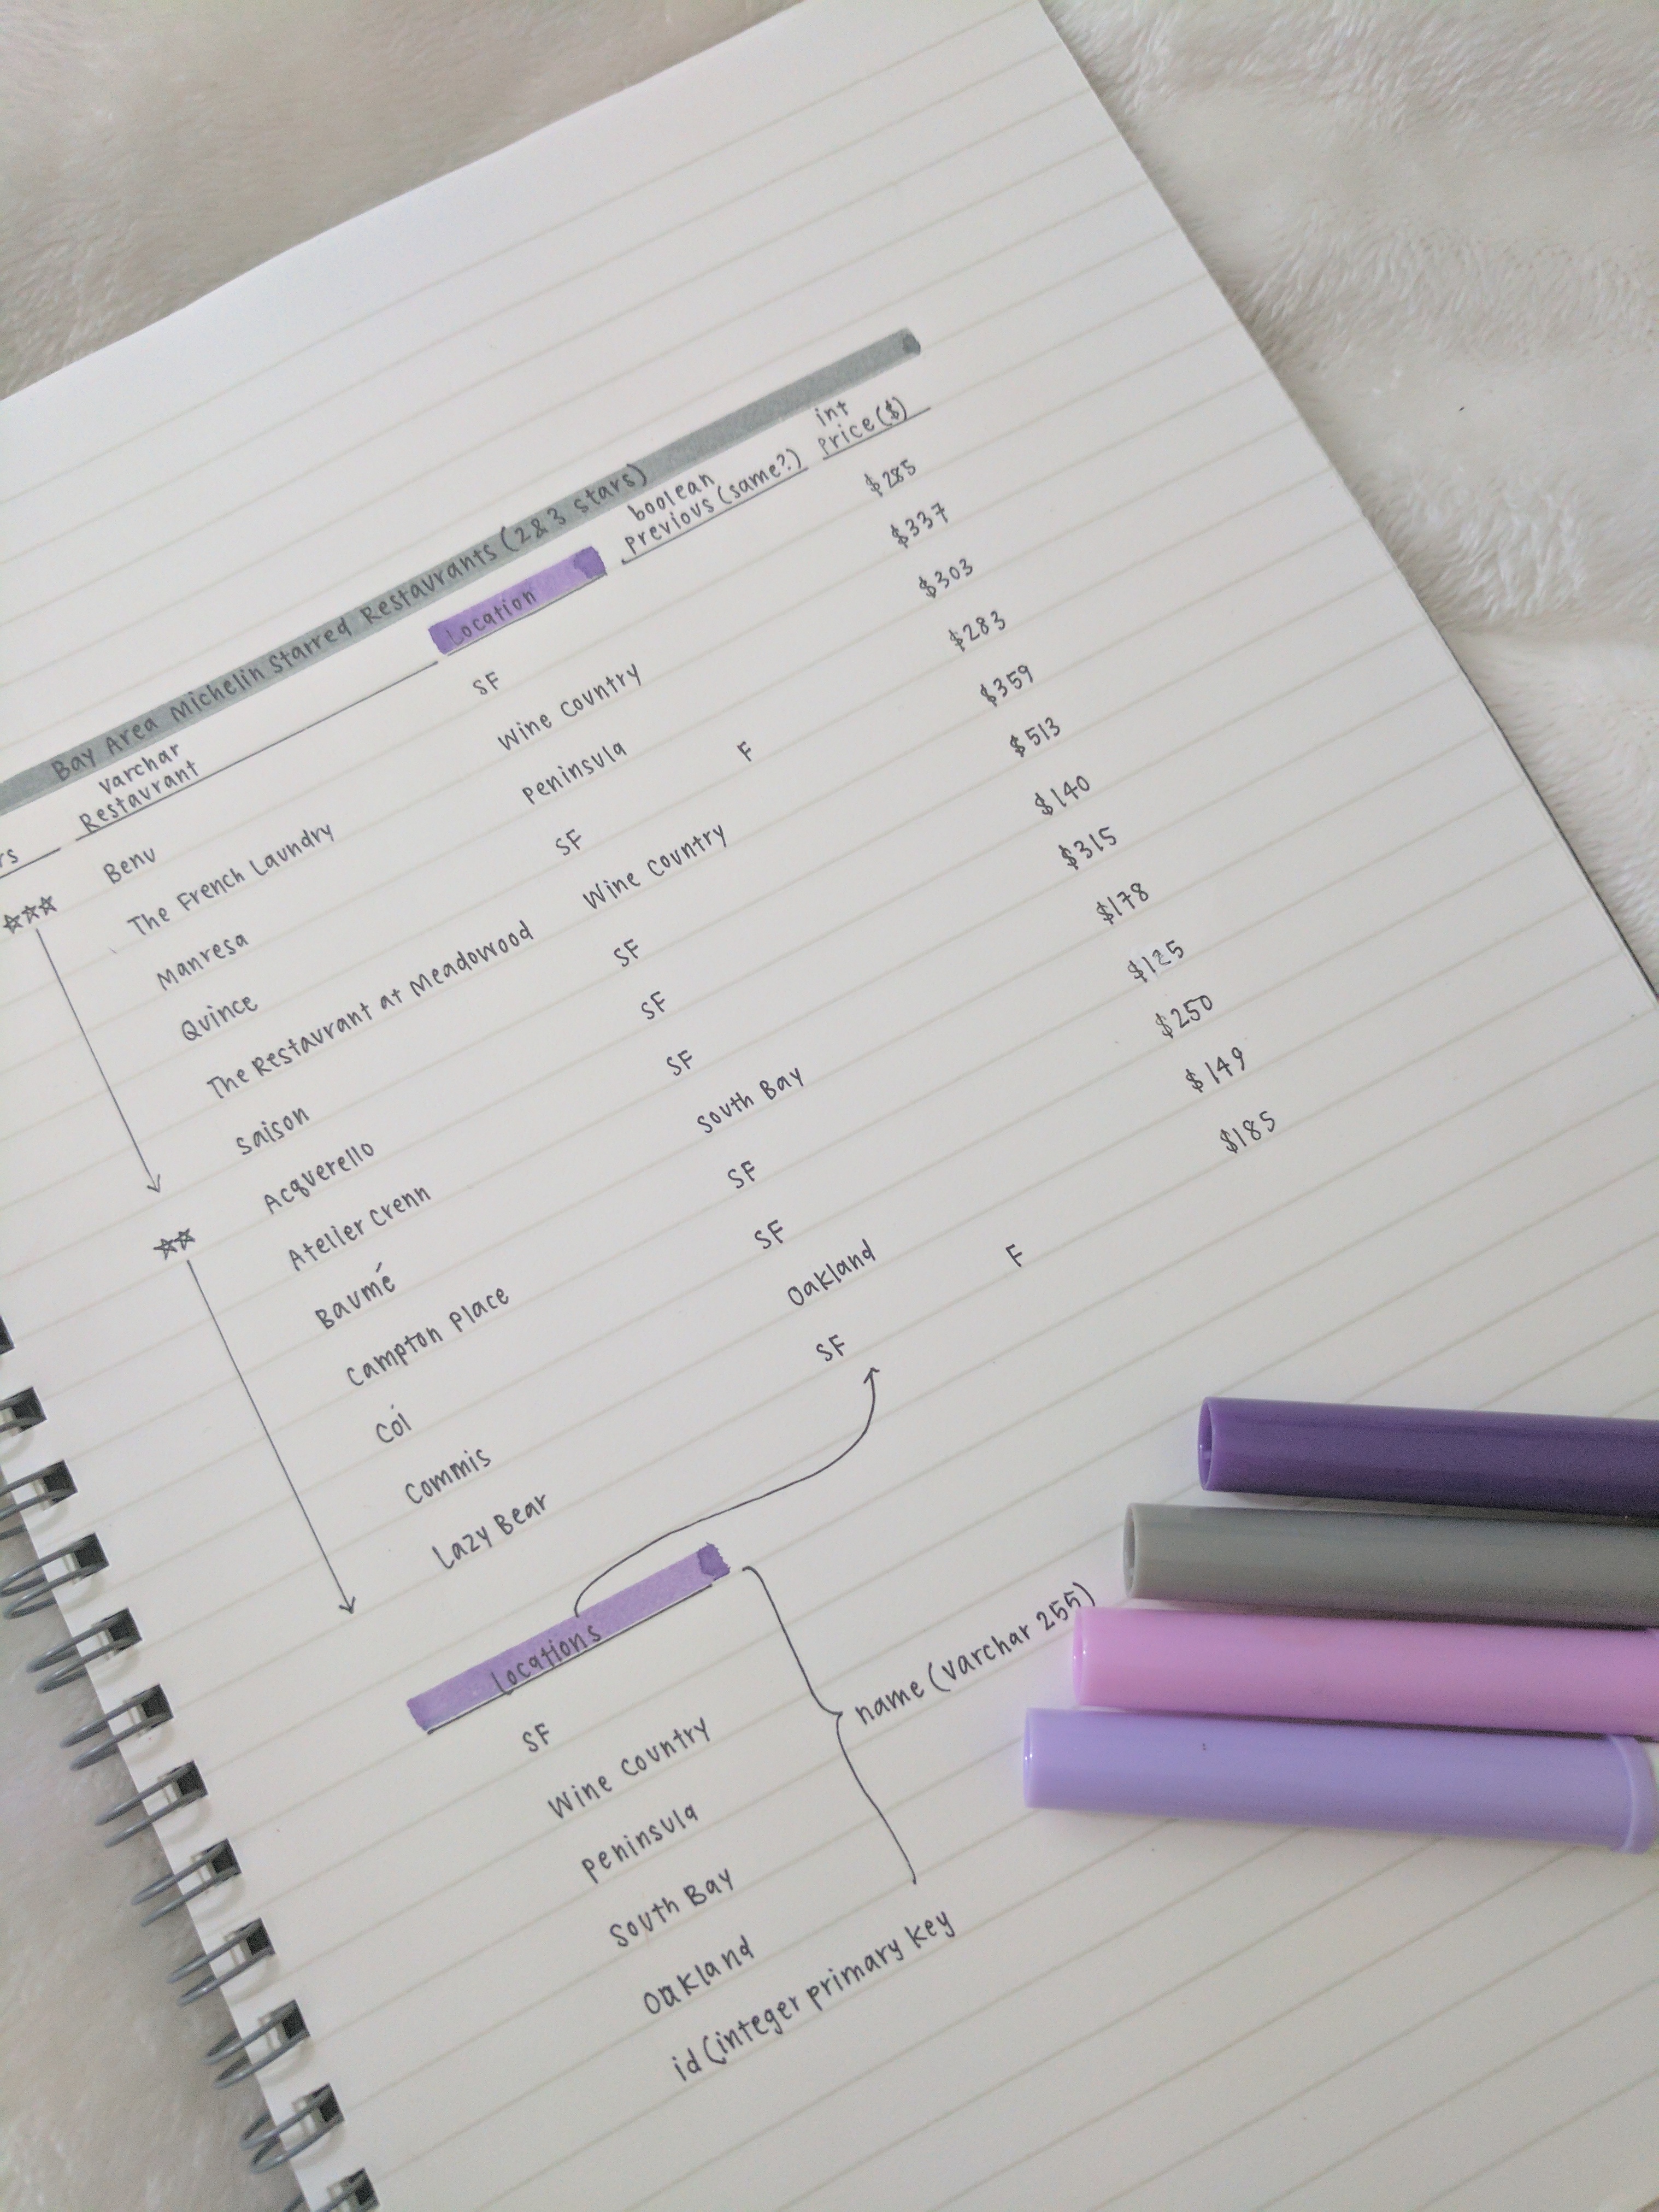 Bay Area Michelin Starred Restaurants (2&3 stars)
varchar boolean int
rs Restaurant Location Previous (same?) Price ($)
☆☆☆ Benu SF $285
The French Laundry Wine Country $337
Manresa Peninsula $303
Quince SF F $283
The Restaurant at Meadowood Wine Country $359
Saison SF $513
☆☆ Acquerello SF $140
Atelier Crenn SF $315
Baumé South Bay $178
Campton Place SF $125
Coi SF $250
Commis Oakland $149
Lazy Bear SF F $185
Locations
SF
Wine Country
Peninsula
South Bay
Oakland
name (varchar 255)
id (integer primary key